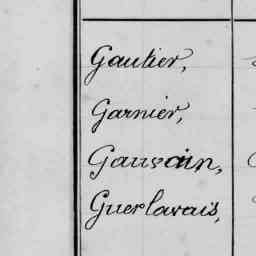 Gautier,
Garnier,
Gauvain,
Guerlavais,